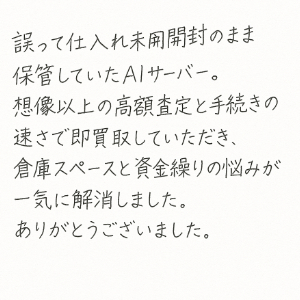 誤って仕入れ未用開封のまま
保管していたAIサーバー。
想像以上の高額査定と手続きの
速さで即買取していただき、
倉庫スペースと資金繰りの悩みが
一気に解消しました。
ありがとうございました。